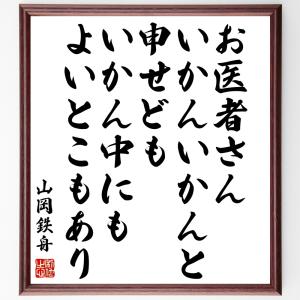 お医者さん
いかんいかんと
申せども
いかん中にも
よいとこもあり
山岡鉄舟